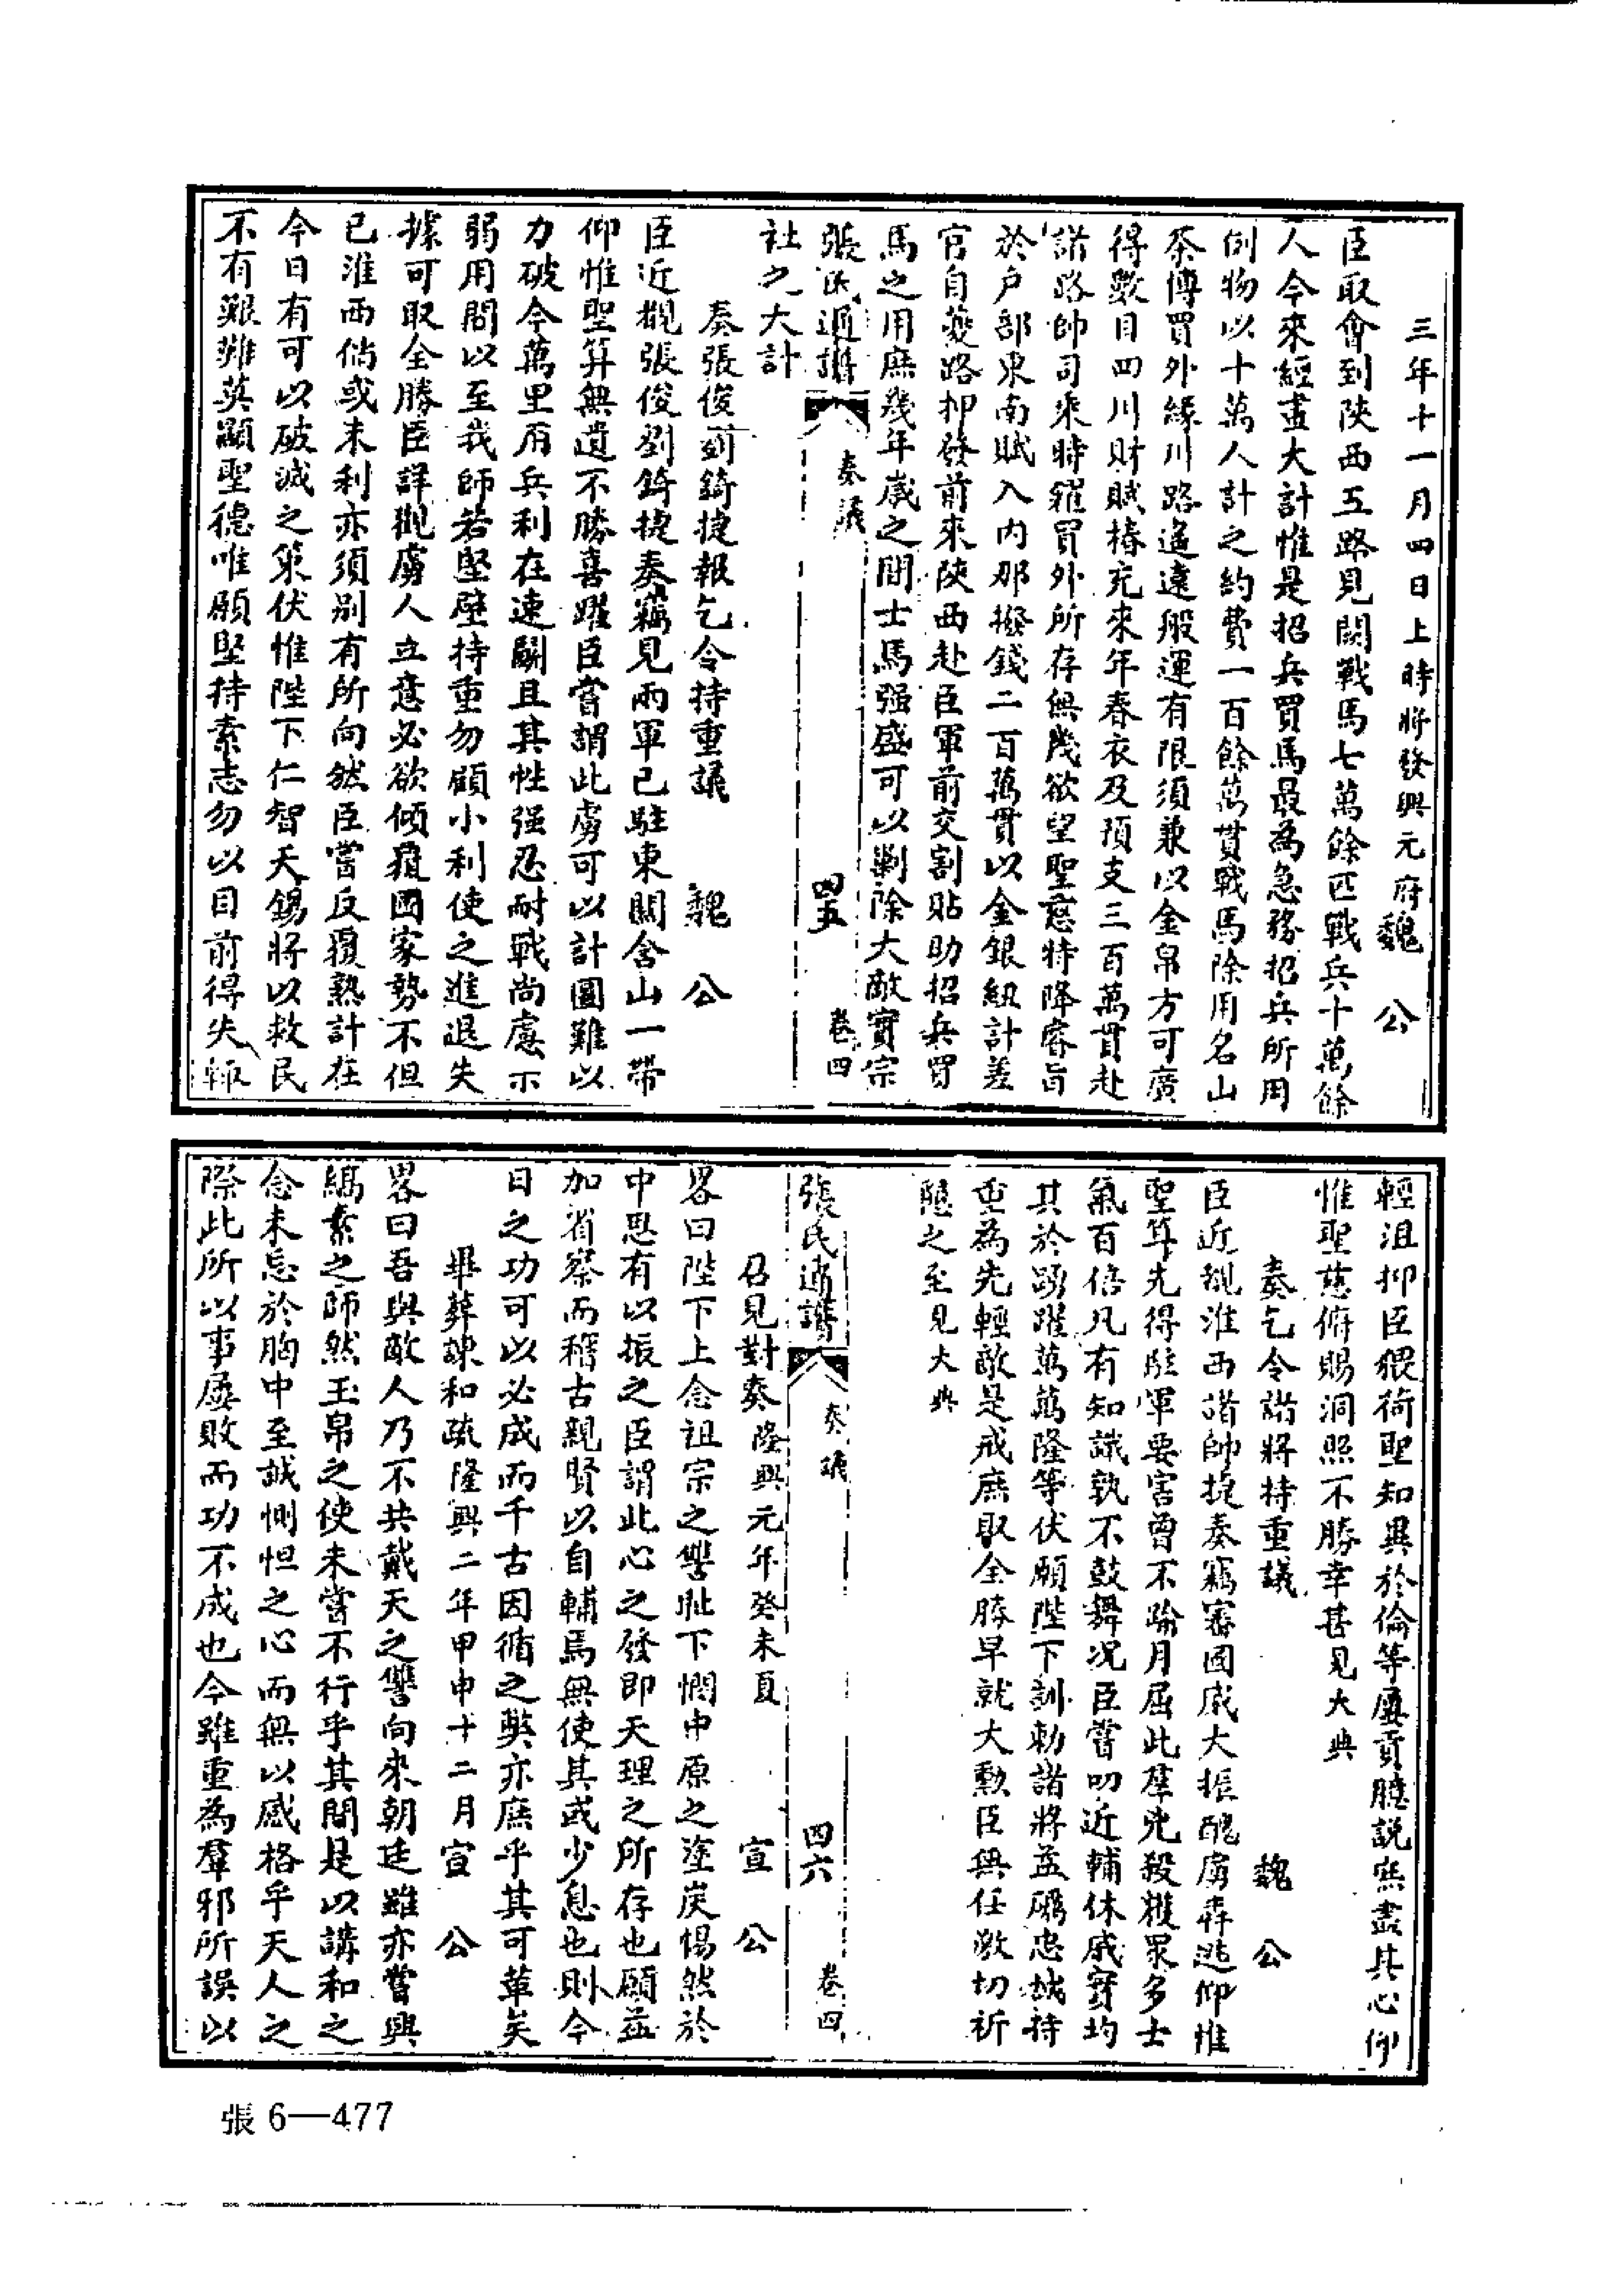 三年十一月四日上時將發興元府魏公
臣取會到陝西五路見闕戰馬七萬餘匹戰兵十萬餘
人今來經畫大計惟是招兵買馬最為急務招兵所用
例物以十萬人計之約費一百餘萬貫戰馬除用名山
茶博買外緣川路遙遠般運有限須兼以金帛方可廣
得數目四川財賦樁充來年春衣及預支三百萬貫赴
諸路帥司乘時糴買外所存無幾欲望聖慈特降睿旨
於户部東南賦入內那撥錢二百萬貫以金銀紐計差
官自夔路押發前來陝西赴臣軍前交割貼助招兵買
馬之用庶幾年歲之間士馬强盛可以剿除大敵實宗
張氏通譜 奏議 四五 卷四
社之大計
奏張俊劉錡捷報乞令持重議 魏公
臣近覩張俊劉錡捷奏竊見兩軍已駐東關含山一帶
仰惟聖算無遺不勝喜躍臣嘗謂此虜可以計圖難以
力破今萬里用兵利在速鬭且其性强忍耐戰尚慮示
弱用間以至我師若堅壁持重勿顧小利使之進退失
據可取全勝臣詳觀虜人立意必欲傾覆國家勢不但
已淮西倘或未利亦須別有所向然臣嘗反覆熟計在
今日有可以破滅之策伏惟陛下仁智天錫將以救民
不有艱難莫顯聖德唯願堅持素志勿以目前得失輒
輕沮抑臣猥荷聖知異於倫等屢貢臆說庶盡其心仰
惟聖慈俯賜洞照不勝幸甚見大典
奏乞令諸將持重議 魏公
臣近覩淮西諸帥捷奏竊審國威大振醜虜奔逃仰惟
聖算先得駐軍要害曾不踰月屈此羣兇殺獲眾多士
氣百倍凡有知識孰不鼓舞況臣嘗叨近輔休戚實均
其於踴躍萬萬隆等伏願陛下訓勅諸將益礪忠誠持
重為先輕敵是戒庶取全勝早就大勳臣無任激切祈
懇之至見大典
張氏通譜 奏議 四六 卷四
召見對奏隆興元年癸未夏 宣公
畧曰陛下上念祖宗之讐恥下憫中原之塗炭惕然於
中思有以振之臣謂此心之發即天理之所存也願益
加省察而稽古親賢以自輔焉無使其或少息也則今
日之功可以必成而千古因循之弊亦庶乎其可革矣
畢葬諫和疏隆興二年甲申十二月宣公
畧曰吾與敵人乃不共戴天之讐向來朝廷雖亦嘗興
縞素之師然玉帛之使未嘗不行乎其間是以講和之
念未忘於胸中至誠惻怛之心而無以感格乎天人之
際此所以事屢敗而功不成也今雖重為羣邪所誤以
張6—477